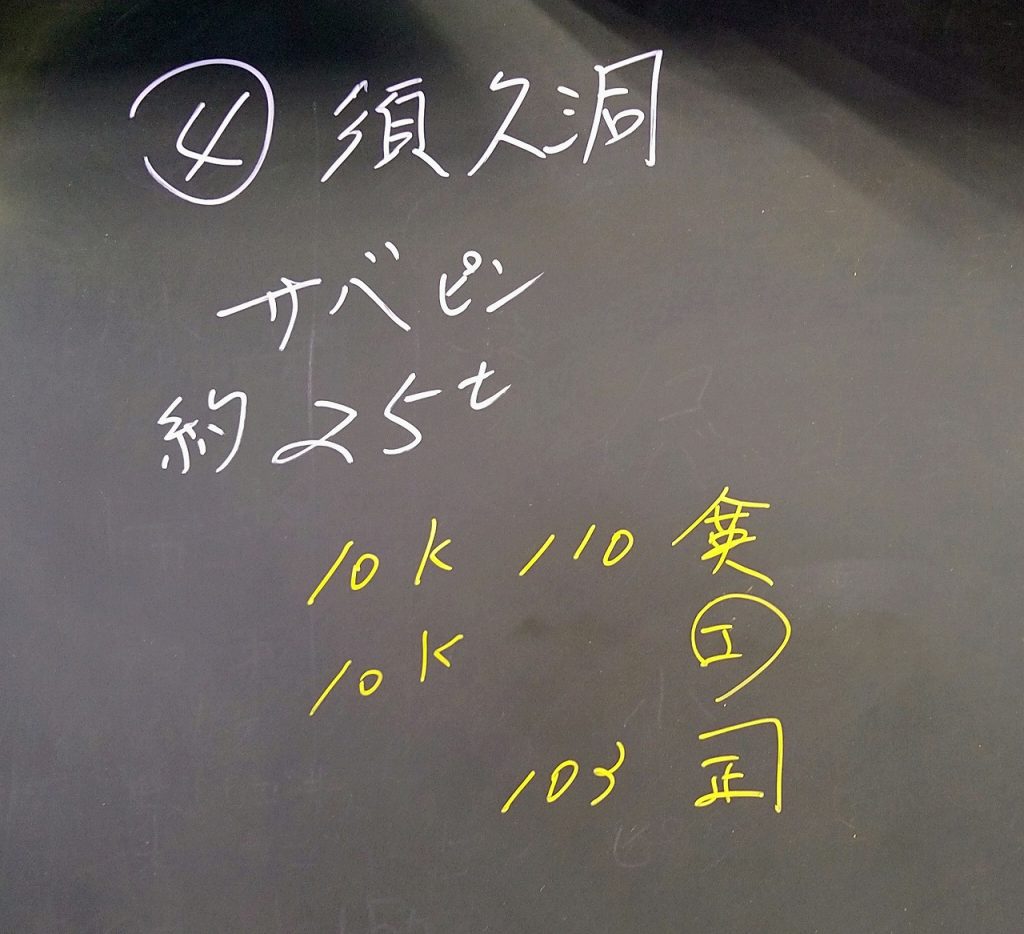 ④ 須久洞
サバピン
約25t
10K 110 英
10K エ
103 正